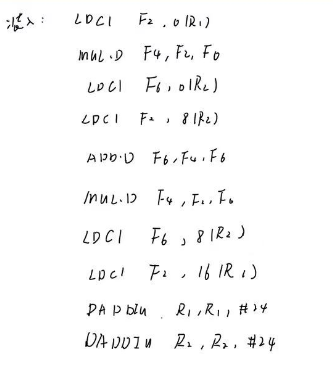 LDC1 F2, 0(R1)
MUL.D F4, F2, F0
LDC1 F6, 0(R2)
LDC1 F2, 8(R2)
ADD.D F6, F4, F6
MUL.D F4, F2, F0
LDC1 F6, 8(R2)
LDC1 F2, 16(R1)
DADDIU R1, R1, #24
DADDIU R2, R2, #24